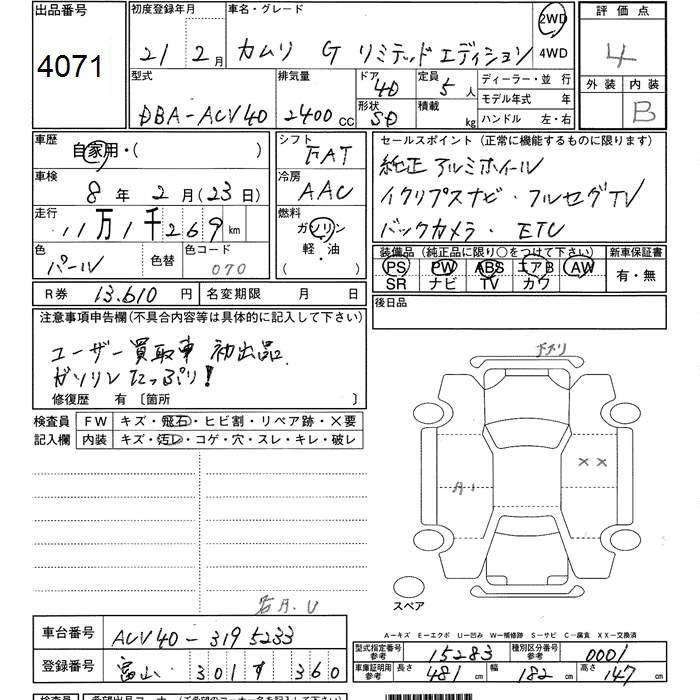 出品番号 初度登録年月 車名・グレード 評価点
4071 21年 2月 カムリ G リミテッドエディション 2WD 4WD 4
型式 排気量 ドア 4D 定員 5人 ディーラー・並行 外装 内装
DBA-ACV40 2400cc 形状 SD 積載 kg モデル年式 年 B
ハンドル 左・右
車歴 自家用・( ) シフト FAT セールスポイント (正常に機能するものに限ります)
車検 8年 2月(23日) 冷房 AAC 純正アルミホイール
イクリプスナビ・フルセグTV
走行 11万1千269km 燃料 ガソリン バックカメラ・ETC
軽・油
( )
色 パール 色替 色コード 070 装備品 (純正品に限り○をつけて下さい) 新車保証書
PS PW ABS エアB AW 有・無
SR ナビ TV カワ
R券 13,610円 名変期限 月 日 後日品
注意事項申告欄(不具合内容等は具体的に記入して下さい)
ユーザー買取車 初出品
ガソリンたっぷり!
修復歴 有〔箇所 〕
検査員 FW キズ・飛石・ヒビ割・リペア跡・×要
記入欄 内装 キズ・汚レ・コゲ・穴・スレ・キレ・破レ
下スリ
××
スペア
A-キズ E-エクボ U-凹み W-補修跡 S-サビ C-腐食 XX-交換済
車台番号 ACV40-3195233
登録番号 富山 301 す 360
型式指定番号 参考 15283 種別区分番号 参考 0001
車庫証明用 参考 長さ 481cm 幅 182cm 高さ 147cm